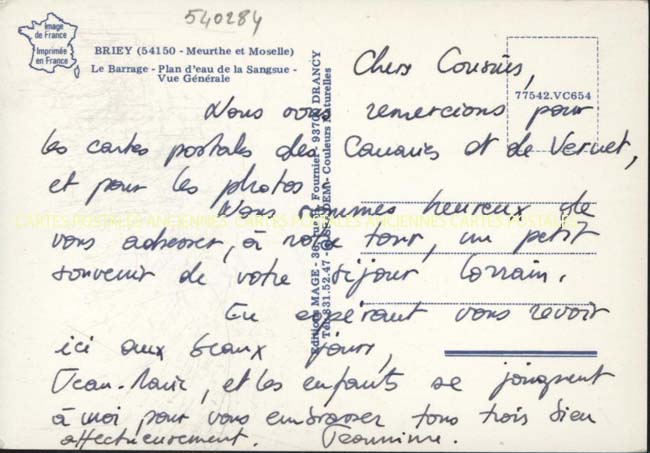 540284
Image
de France
Imprimée
en France
BRIEY (54150 - Meurthe et Moselle)
Le Barrage - Plan d'eau de la Sangsue -
Vue Générale
77542.VC654
Editions MAGE - 36, rue Fournier, 93700 DRANCY
Tél. 831.52.47 - Couleurs Naturelles
Chers Cousins,
Nous vous remercions pour
les cartes postales des Canaries et de Vernet,
et pour les photos
Nous sommes heureux de
vous adresser, à notre tour, un petit
souvenir de votre séjour Lorrain.
En espérant vous revoir
ici aux beaux jours,
Jean-Marie, et les enfants se joignent
à moi pour vous embrasser tous trois bien
affectueusement. Jeannine.
CARTES POSTALES ANCIENNES CARTES POSTALES ANCIENNES CARTES POSTALES